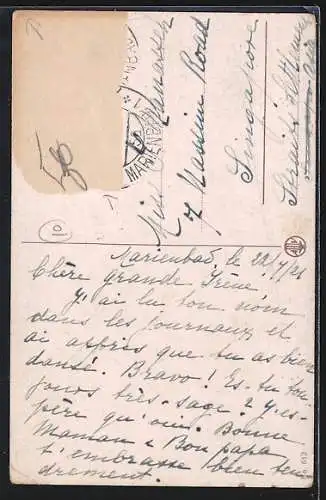 MARIENBAD
Miss
Road
Singapore
Straits Settlements
Marienbad, le 22/7/26
Chère grande Irène
J'ai lu ton nom
dans les journaux et
ai appris que tu as bien
dansé. Bravo! Es-tu tou-
jours très-sage? J'es-
père qu'oui. Bonne
Maman & Bon papa
t'embrasse bien ten
drement.